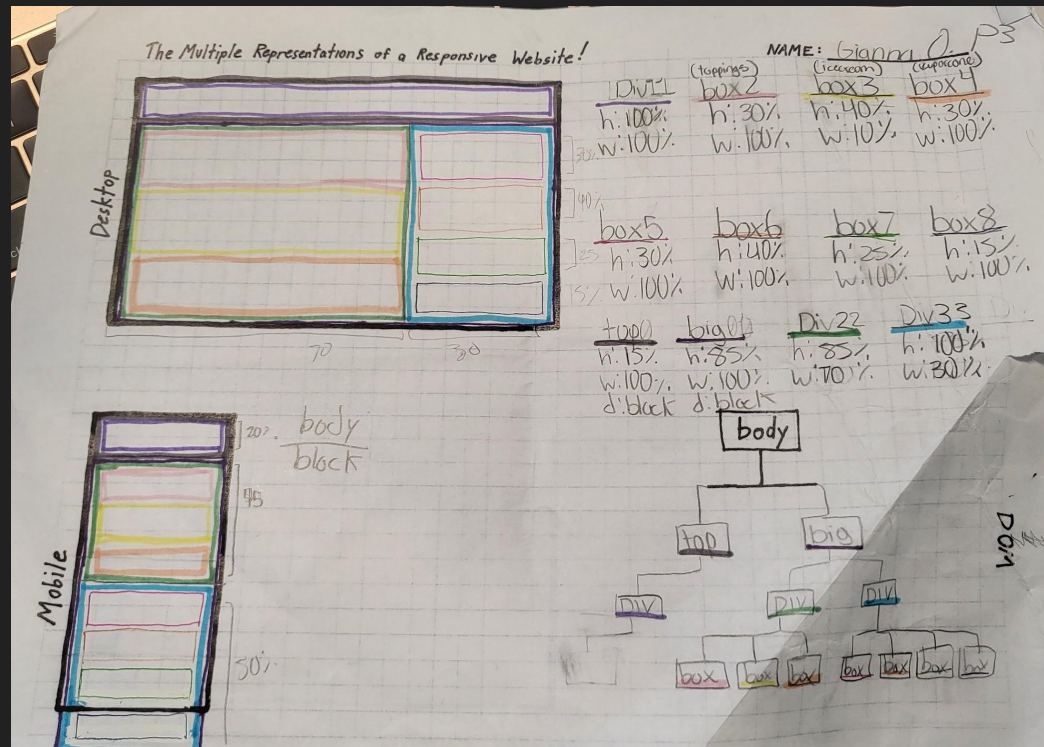 The Multiple Representations of a Responsive Website!
NAME: Gianna O. P3
Desktop
70
30
30%
40%
25
15%
Div11
h:100%
w:100%
(toppings)
box2
h:30%
w:100%
(icecream)
box3
h:40%
w:10%
box4
h:30%
w:100%
box5
h:30%
w:100%
box6
h:40%
w:100%
box7
h:25%
w:100%
box8
h:15%
w:100%
top
h:15%
w:100%
d:block
big
h:85%
w:100%
d:block
Div22
h:85%
w:70%
Div33
h:100%
w:30%
Mobile
20%
45
50%
body
block
body
top
big
DIV
DIV
DIV
box
box
box
box
box
box
box
DOM